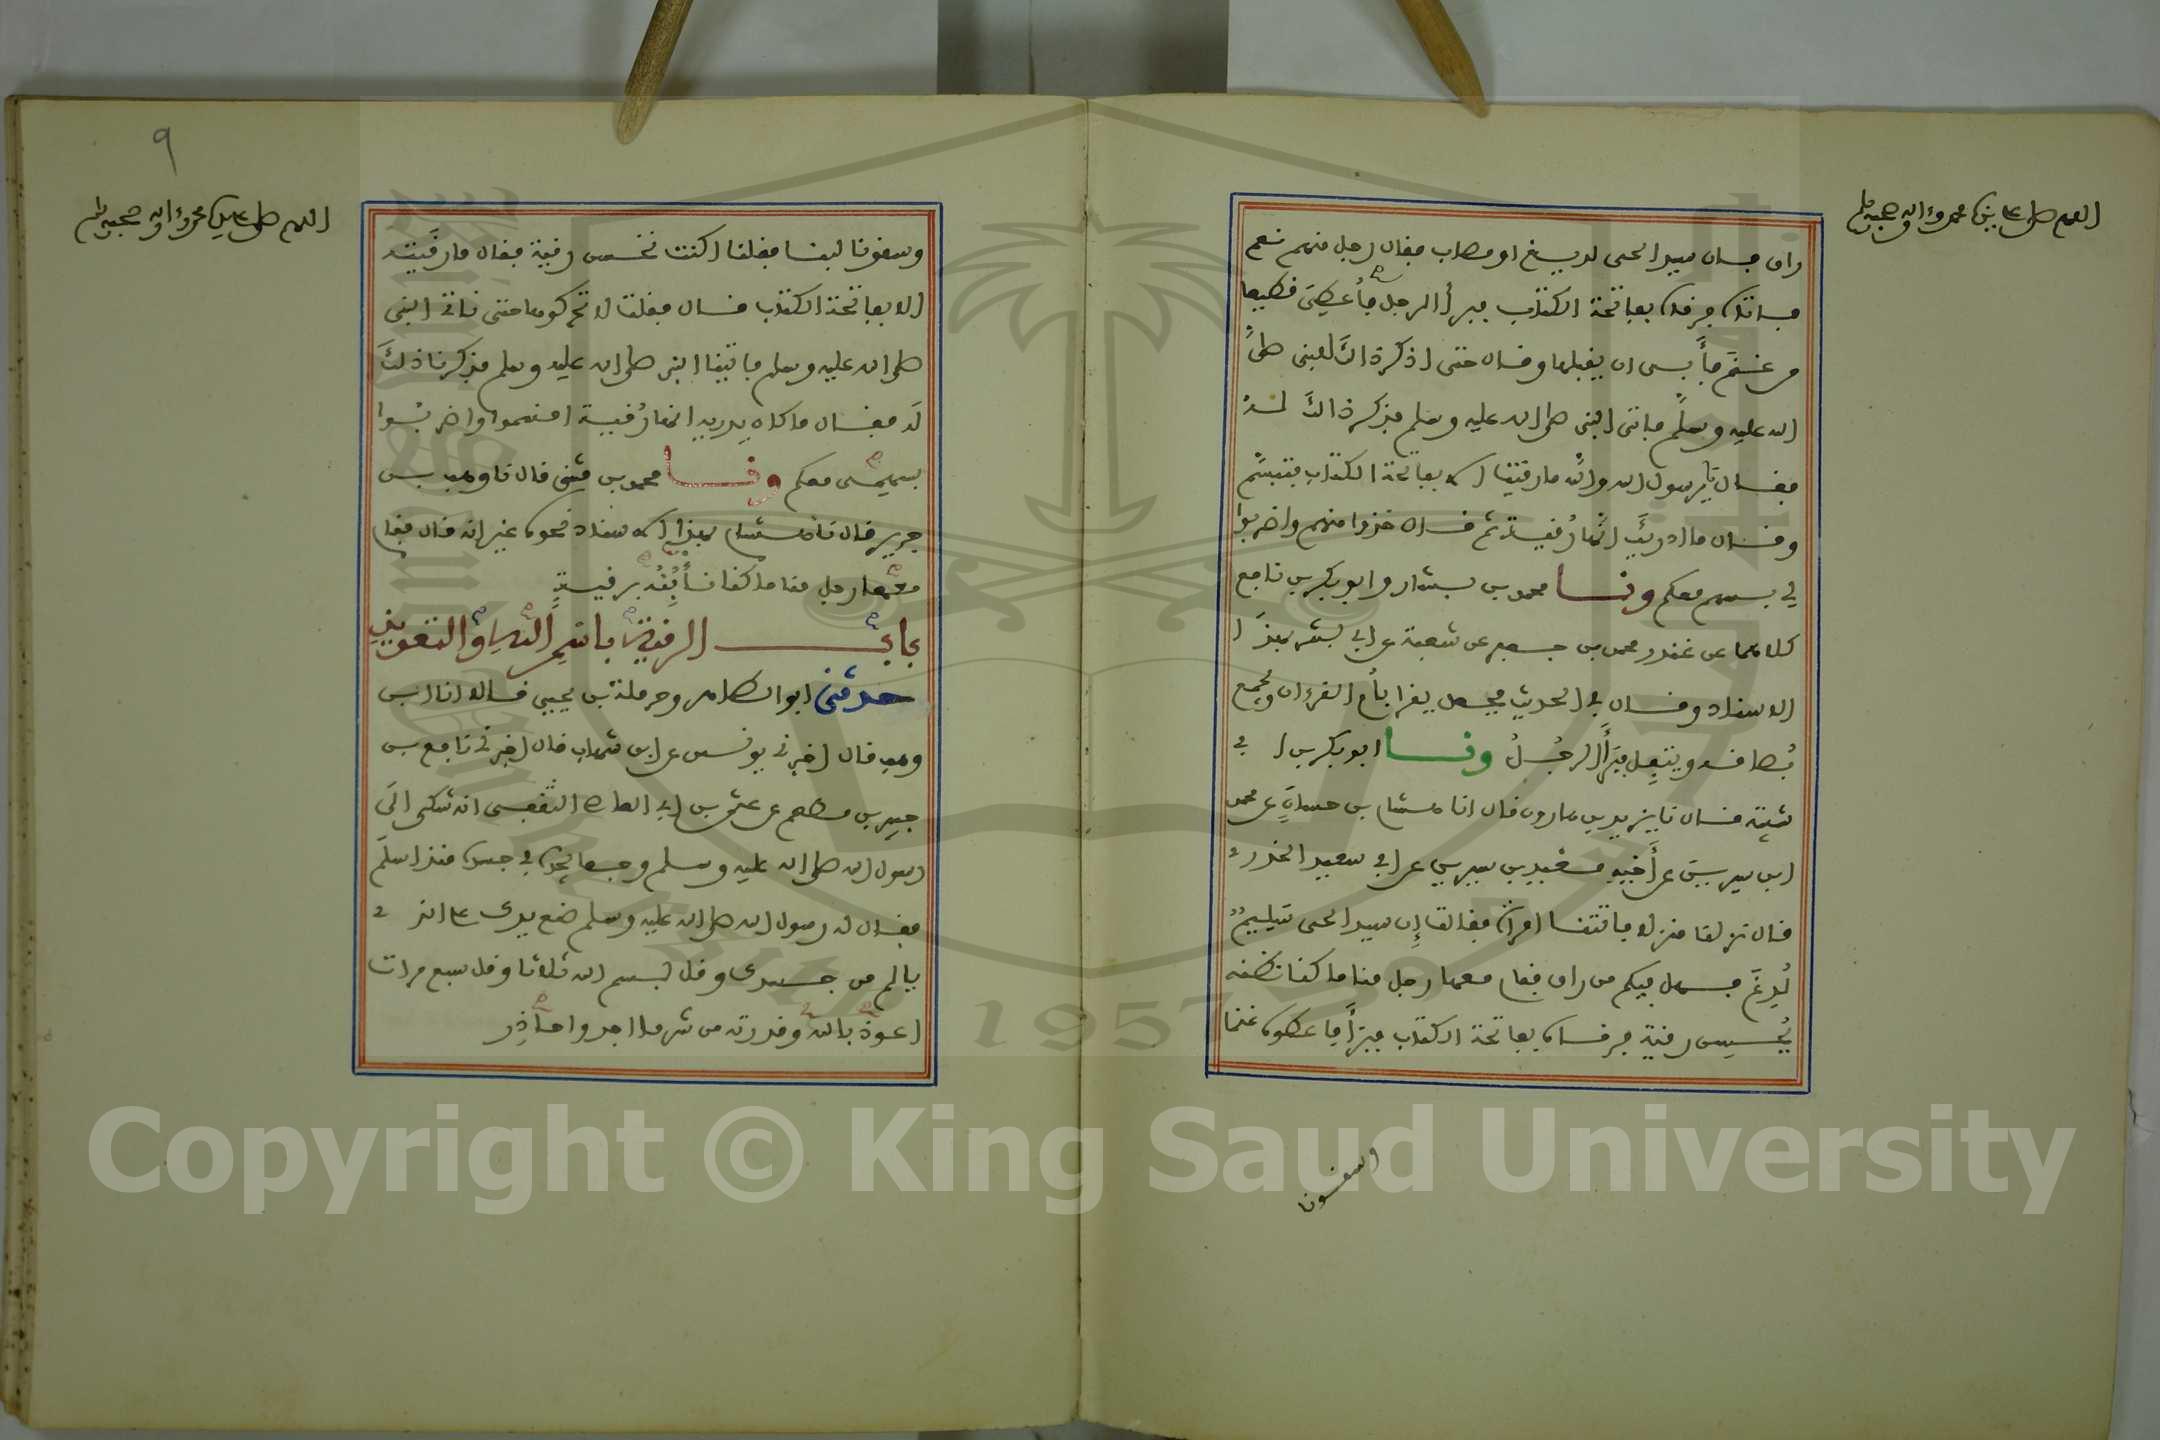 اللهم صل على سيدنا محمد وءاله وصحبه وسلم
راق فان سيد الحي لديغ او مصاب فقال رجل منهم نعم
فاتاه فرقاه بفاتحة الكتاب فبرأ الرجل فأُعطِيَ قطيعا
من غنم فأبى ان يقبلها وقال حتى اذكر ذالك للنبي صلى
الله عليه وسلم فاتى النبي صلى الله عليه وسلم فذكر ذالك له
فقال يا رسول الله والله ما رقيت الا بفاتحة الكتاب فتبسم
وقال ما ادريك انها رُقية ثم قال خذوا منهم واضربوا
لي بسهم معكم ونا محمد بن بشار وابو بكر بن نافع
كلاهما عن غندر محمد بن جعفر عن شعبة عن ابي بشر بهذا
الاسناد وقال في الحديث فجعل يقرا بأم القرءان ويجمع
بُصاقه ويتفل فبَرَأَ الرجُلُ ونا ابو بكر بن ابي
شيبة قال نا يزيد بن هارون قال انا هشام بن حسان عن محمد
ابن سيرين عن أخيه معبد بن سيرين عن ابي سعيد الخدري
قال نزلنا منزلا فاتتنا امراة فقالت إن سيد الحي سليم
لُدِغَ فهل فيكم من راق فقام معها رجل منا ما كنا نظنه
يُحسِن رقية فرقاه بفاتحة الكتاب فبرأ فاعطوه غنما
وسقونا
اللهم صل على سيدنا محمد وءاله وصحبه وسلم
٩
وسقونا لبنا فقلنا اكنت تحسن رقية فقال ما رقَيته
الا بفاتحة الكتاب قال فقلت لا تحركوها حتى ناتي النبي
صلى الله عليه وسلم فاتينا النبي صلى الله عليه وسلم فذكرنا ذلك
لَه فقال ما كان يدريه انها رُقية اقسموا واضربُوا
بسهمي معكم ونا محمد بن مثنى قال نا وهب بن
جرير قال نا هشام بهذا الاسناد نحوه غير انه قال فقام
معها رجل منا ما كنا نأبُنُه برقية
باب الرقية باسم الله والتعويذ
حدثني ابو الطاهر وحرملة بن يحيى قالا انا ابن
وهب قال اخبرني يونس عن ابن شهاب قال اخبرني نافع بن
جبير بن مطعم عن عثمن بن ابي العاص الثقفي انه شكى الَى
رسول الله صلى الله عليه وسلم وجعا يجده في جسده منذ اسلم
فقال له رسول الله صلى الله عليه وسلم ضع يدك على الذي
يالم من جسدك وقل بسم الله ثلاثا وقل سبع مرات
اعوذ بالله وقدرته من شر ما اجد واحاذِر